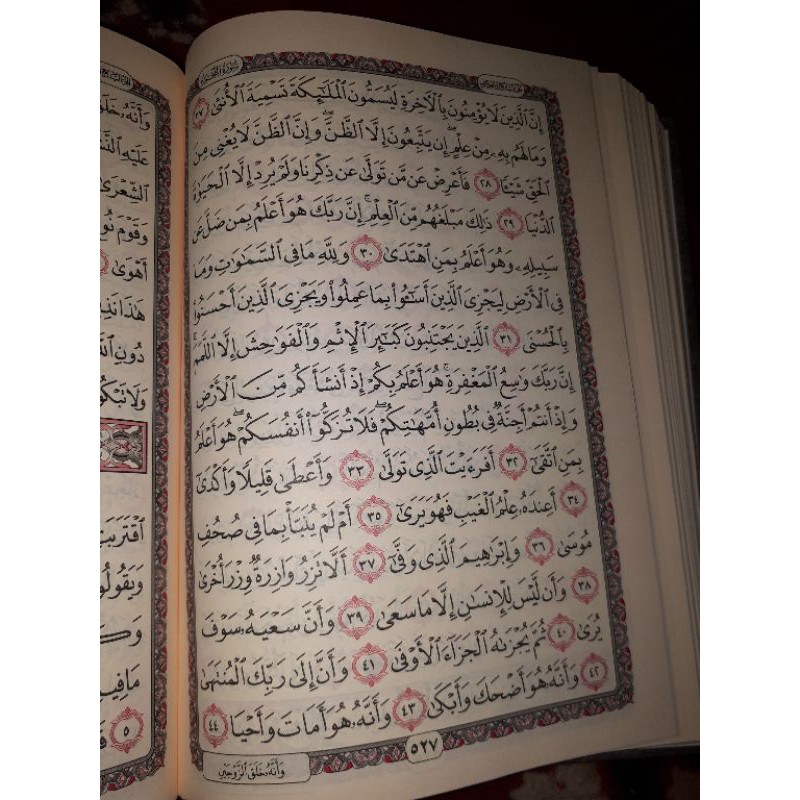 سورة النجم
إِنَّ ٱلَّذِينَ لَا يُؤْمِنُونَ بِٱلْـَٔاخِرَةِ لَيُسَمُّونَ ٱلْمَلَـٰٓئِكَةَ تَسْمِيَةَ ٱلْأُنثَىٰ ٢٧
وَمَا لَهُم بِهِۦ مِنْ عِلْمٍ ۖ إِن يَتَّبِعُونَ إِلَّا ٱلظَّنَّ ۖ وَإِنَّ ٱلظَّنَّ لَا يُغْنِى مِنَ
ٱلْحَقِّ شَيْـًٔا ٢٨ فَأَعْرِضْ عَن مَّن تَوَلَّىٰ عَن ذِكْرِنَا وَلَمْ يُرِدْ إِلَّا ٱلْحَيَوٰةَ
ٱلدُّنْيَا ٢٩ ذَٰلِكَ مَبْلَغُهُم مِّنَ ٱلْعِلْمِ ۚ إِنَّ رَبَّكَ هُوَ أَعْلَمُ بِمَن ضَلَّ عَن
سَبِيلِهِۦ وَهُوَ أَعْلَمُ بِمَنِ ٱهْتَدَىٰ ٣٠ وَلِلَّهِ مَا فِى ٱلسَّمَـٰوَٰتِ وَمَا
فِى ٱلْأَرْضِ لِيَجْزِىَ ٱلَّذِينَ أَسَـٰٓـُٔوا۟ بِمَا عَمِلُوا۟ وَيَجْزِىَ ٱلَّذِينَ أَحْسَنُوا۟
بِٱلْحُسْنَى ٣١ ٱلَّذِينَ يَجْتَنِبُونَ كَبَـٰٓئِرَ ٱلْإِثْمِ وَٱلْفَوَٰحِشَ إِلَّا ٱللَّمَمَ ۚ
إِنَّ رَبَّكَ وَٰسِعُ ٱلْمَغْفِرَةِ ۚ هُوَ أَعْلَمُ بِكُمْ إِذْ أَنشَأَكُم مِّنَ ٱلْأَرْضِ
وَإِذْ أَنتُمْ أَجِنَّةٌ فِى بُطُونِ أُمَّهَـٰتِكُمْ ۖ فَلَا تُزَكُّوٓا۟ أَنفُسَكُمْ ۖ هُوَ أَعْلَمُ
بِمَنِ ٱتَّقَىٰٓ ٣٢ أَفَرَءَيْتَ ٱلَّذِى تَوَلَّىٰ ٣٣ وَأَعْطَىٰ قَلِيلًا وَأَكْدَىٰٓ
٣٤ أَعِندَهُۥ عِلْمُ ٱلْغَيْبِ فَهُوَ يَرَىٰٓ ٣٥ أَمْ لَمْ يُنَبَّأْ بِمَا فِى صُحُفِ
مُوسَىٰ ٣٦ وَإِبْرَٰهِيمَ ٱلَّذِى وَفَّىٰٓ ٣٧ أَلَّا تَزِرُ وَازِرَةٌ وِزْرَ أُخْرَىٰ
٣٨ وَأَن لَّيْسَ لِلْإِنسَـٰنِ إِلَّا مَا سَعَىٰ ٣٩ وَأَنَّ سَعْيَهُۥ سَوْفَ
يُرَىٰ ٤٠ ثُمَّ يُجْزَىٰهُ ٱلْجَزَآءَ ٱلْأَوْفَىٰ ٤١ وَأَنَّ إِلَىٰ رَبِّكَ ٱلْمُنتَهَىٰ
٤٢ وَأَنَّهُۥ هُوَ أَضْحَكَ وَأَبْكَىٰ ٤٣ وَأَنَّهُۥ هُوَ أَمَاتَ وَأَحْيَا ٤٤
٥٢٧
وَأَنَّهُۥ خَلَقَ ٱلزَّوْجَيْنِ
وَأَنَّهُۥ خَلَقَ
عَلَيْهِ
ٱلشِّعْرَىٰ
وَقَوْمَ نُوحٍ
أَهْوَىٰ
هَـٰذَا نَذِيرٌ
دُونِ ٱللَّهِ
وَلَا تَبْكُونَ
ٱقْتَرَبَتِ
وَيَقُولُوا۟
مَا فِيهِ
٥